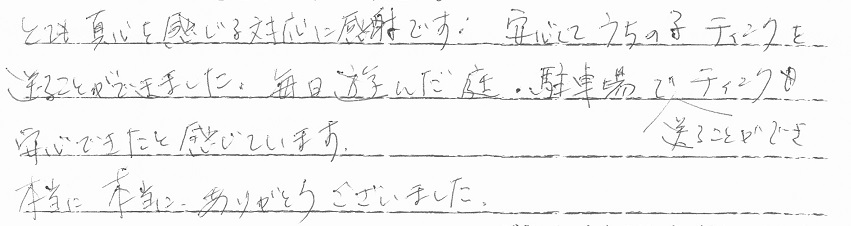 とても真心を感じる対応に感謝です。安心してうちの子ティンクを
送ることができました。毎日遊んだ庭・駐車場でティンクも
送ることができ
安心できたと感じています。
本当に本当に、ありがとうございました。